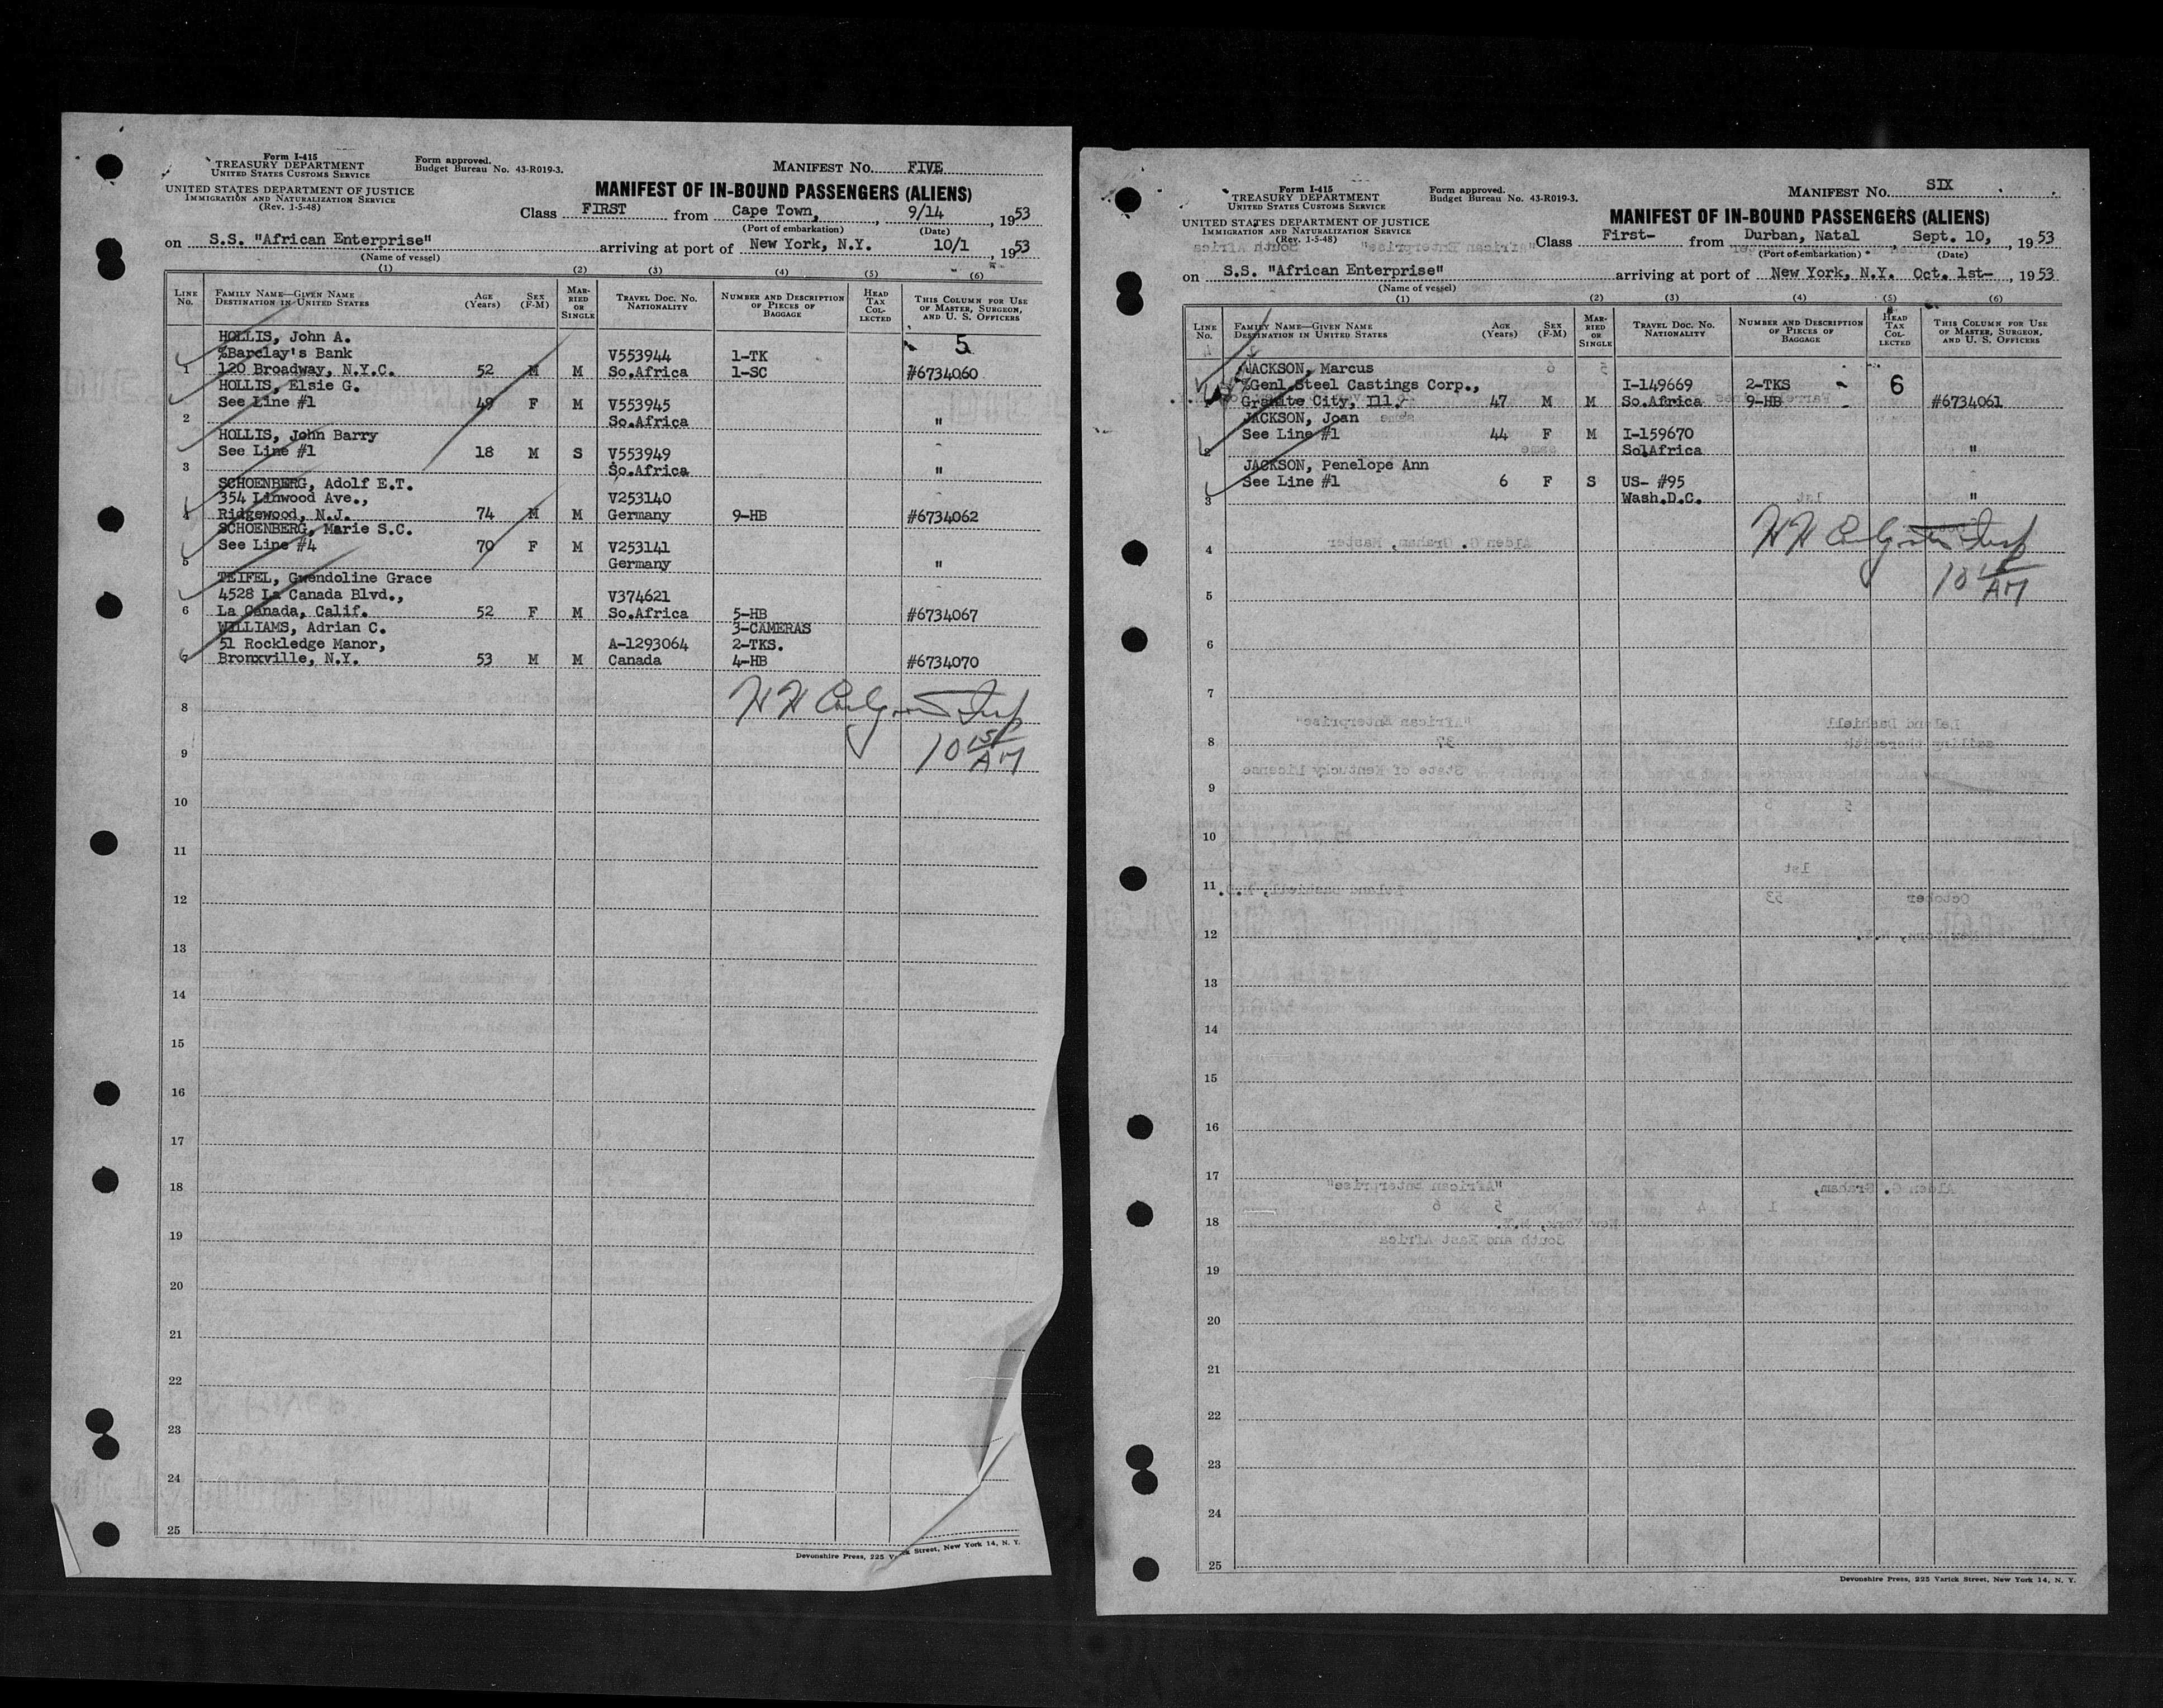 Form I-415
TREASURY DEPARTMENT
UNITED STATES CUSTOMS SERVICE
UNITED STATES DEPARTMENT OF JUSTICE
IMMIGRATION AND NATURALIZATION SERVICE
(Rev. 1-5-48)
Form approved.
Budget Bureau No. 43-R019-3.
MANIFEST No. FIVE
MANIFEST OF IN-BOUND PASSENGERS (ALIENS)
Class FIRST from Cape Town, , 9/14 , 1953
(Port of embarkation) (Date)
on S.S. "African Enterprise" arriving at port of New York, N.Y. 10/1 , 1953
(Name of vessel)
(1) (2) (3) (4) (5) (6)
LINE No. FAMILY NAME—GIVEN NAME DESTINATION IN UNITED STATES AGE (Years) SEX (F-M) MARRIED OR SINGLE TRAVEL DOC. No. NATIONALITY NUMBER AND DESCRIPTION OF PIECES OF BAGGAGE HEAD TAX COLLECTED THIS COLUMN FOR USE OF MASTER, SURGEON, AND U. S. OFFICERS
HOLLIS, John A. 5
%Barclay's Bank V553944 1-TK
1 120 Broadway, N.Y.C. 52 M M So.Africa 1-SC #6734060
HOLLIS, Elsie G.
See Line #1 49 F M V553945
2 So.Africa "
HOLLIS, John Barry
See Line #1 18 M S V553949
3 So.Africa "
SCHOENBERG, Adolf E.T.
354 Linwood Ave., V253140
4 Ridgewood, N.J. 74 M M Germany 9-HB #6734062
SCHOENBERG, Marie S.C.
See Line #4 70 F M V253141
5 Germany "
TEIFEL, Gwendoline Grace
4528 La Canada Blvd., V374621
6 La Canada, Calif. 52 F M So.Africa 5-HB #6734067
WILLIAMS, Adrian C. 3-CAMERAS
51 Rockledge Manor, A-1293064 2-TKS.
7 Bronxville, N.Y. 53 M M Canada 4-HB #6734070
8
9 10 15 AM
10
11
12
13
14
15
16
17
18
19
20
21
22
23
24
25
Devonshire Press, 225 Varick Street, New York 14, N. Y.
Form I-415
TREASURY DEPARTMENT
UNITED STATES CUSTOMS SERVICE
UNITED STATES DEPARTMENT OF JUSTICE
IMMIGRATION AND NATURALIZATION SERVICE
(Rev. 1-5-48)
Form approved.
Budget Bureau No. 43-R019-3.
MANIFEST No. SIX
MANIFEST OF IN-BOUND PASSENGERS (ALIENS)
Class First- from Durban, Natal , Sept. 10, , 1953
(Port of embarkation) (Date)
on S.S. "African Enterprise" arriving at port of New York, N.Y. Oct. 1st- , 1953
(Name of vessel)
(1) (2) (3) (4) (5) (6)
LINE No. FAMILY NAME—GIVEN NAME DESTINATION IN UNITED STATES AGE (Years) SEX (F-M) MARRIED OR SINGLE TRAVEL DOC. No. NATIONALITY NUMBER AND DESCRIPTION OF PIECES OF BAGGAGE HEAD TAX COLLECTED THIS COLUMN FOR USE OF MASTER, SURGEON, AND U. S. OFFICERS
JACKSON, Marcus
%Genl.Steel Castings Corp., I-149669 2-TKS 6
1 Granite City, Ill. 47 M M So.Africa 9-HB #6734061
JACKSON, Joan
See Line #1 44 F M I-159670
2 So.Africa "
JACKSON, Penelope Ann
See Line #1 6 F S US- #95
3 Wash.D.C. "
4
5 10 15 AM
6
7
8
9
10
11
12
13
14
15
16
17
18
19
20
21
22
23
24
25
Devonshire Press, 225 Varick Street, New York 14, N. Y.